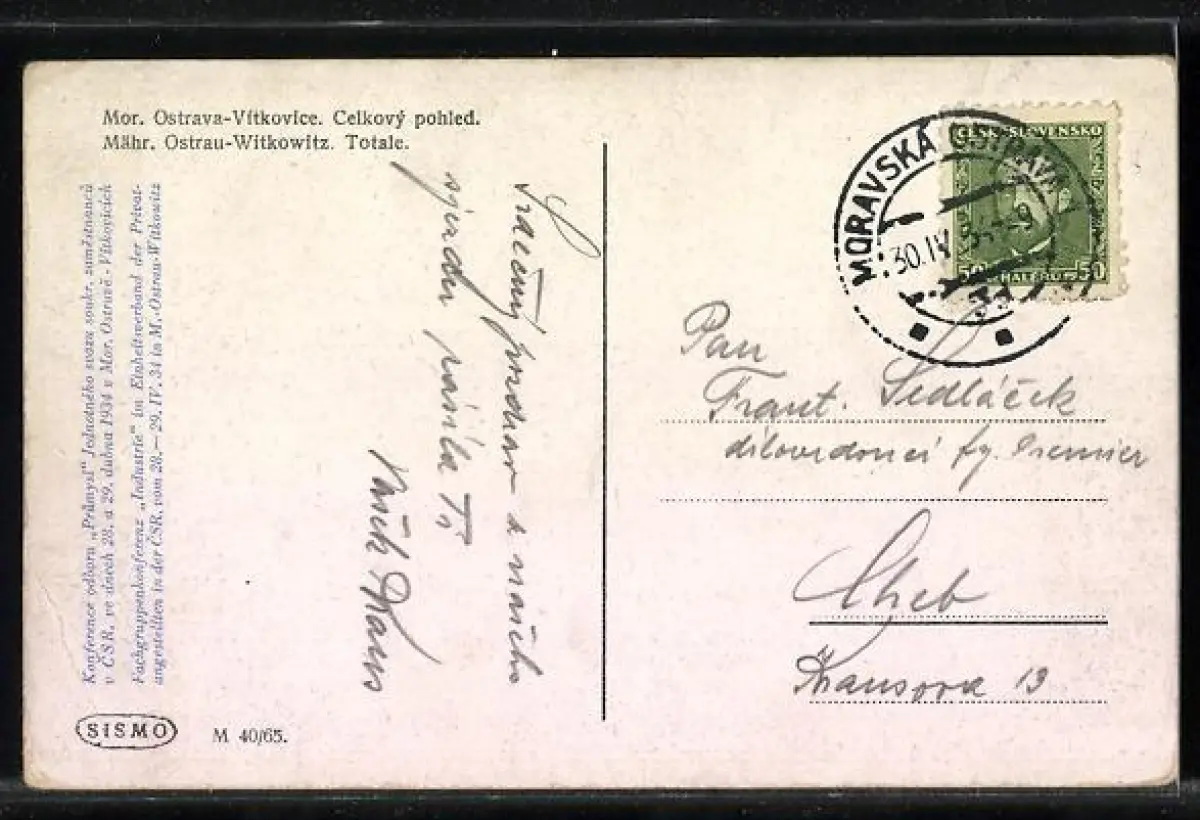 Mor. Ostrava-Vítkovice. Celkový pohled.
Mähr. Ostrau-Witkowitz. Totale.
Konference odboru „Průmysl" Jednotného svazu soukr. zaměstnanců
v ČSR. ve dnech 28. a 29. dubna 1934 v Mor. Ostravě-Vítkovicích
Fachgruppenkonferenz „Industrie" im Einheitsverband der Privat-
angestellten in der ČSR. vom 28.–29. IV. 34 in M.-Ostrau-Witkowitz
Srdečný pozdrav z našeho
sjezdu zasílá Ti
SISMO
M 40/65.
ČESKOSLOVENSKO
50 HALÉŘŮ 50
MORAVSKÁ OSTRAVA
30.IV.34
Pan
Frant. Sedláček
dílovedoucí fy. Premier
Cheb
13